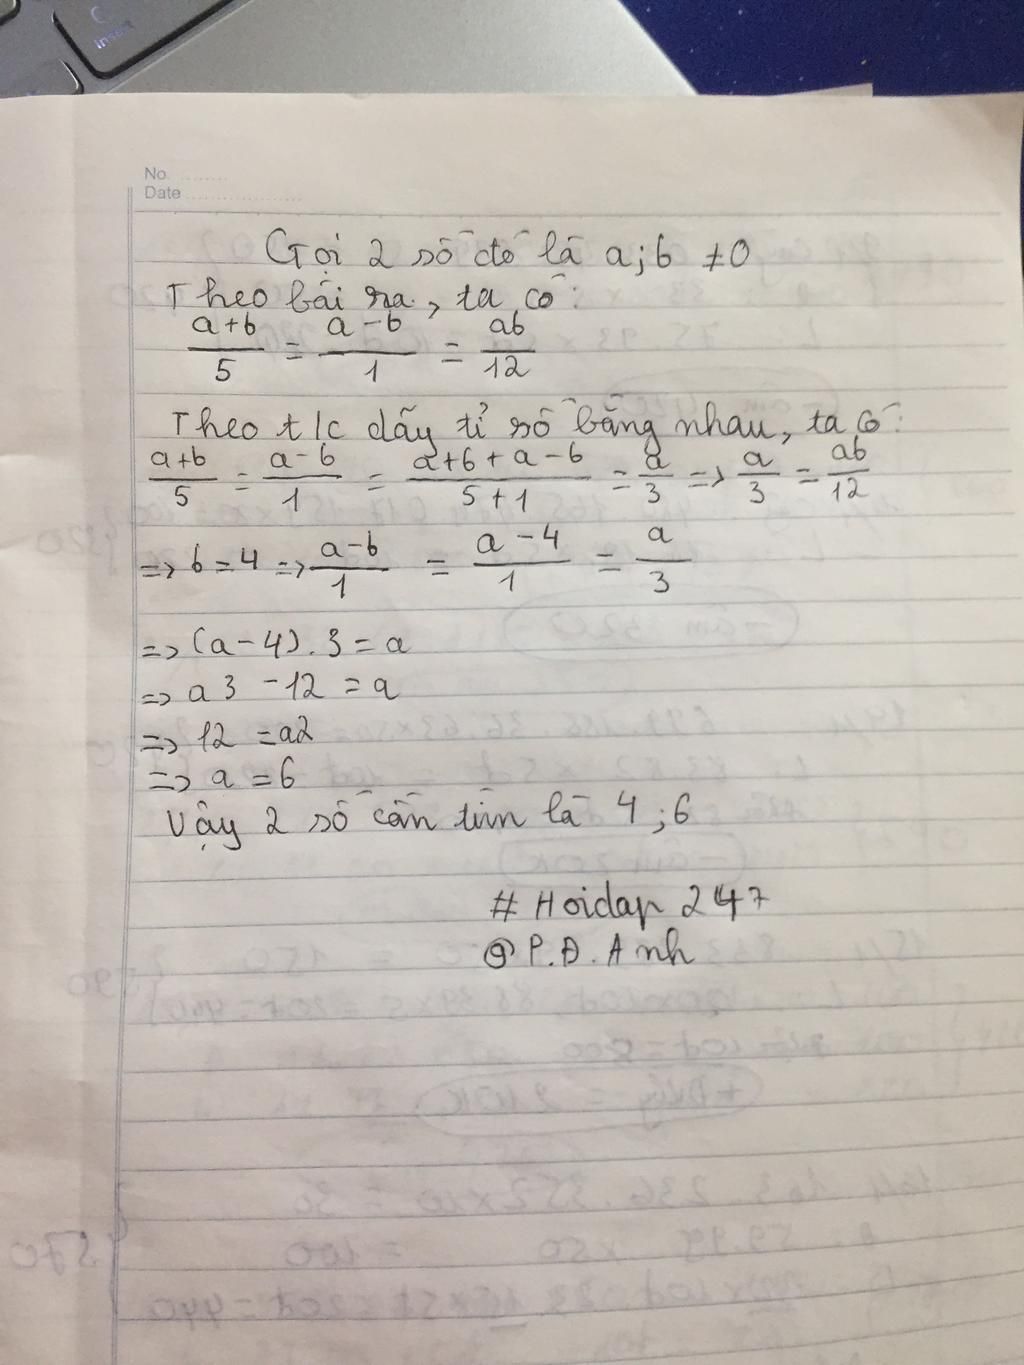 C
Insert
No. ........
Date ....................
Gọi 2 số đó là a; b ≠ 0
Theo bài ra, ta có:
(a+b)/5 = (a-b)/1 = ab/12
Theo t/c dãy tỉ số bằng nhau, ta có:
(a+b)/5 = (a-b)/1 = (a+b+a-b)/(5+1) = a/3 => a/3 = ab/12
=> b = 4 => (a-b)/1 = (a-4)/1 = a/3
=> (a-4).3 = a
=> a3 - 12 = a
=> 12 = a2
=> a = 6
Vậy 2 số cần tìm là 4; 6
# Hoidap 247
@ P.Đ. Anh